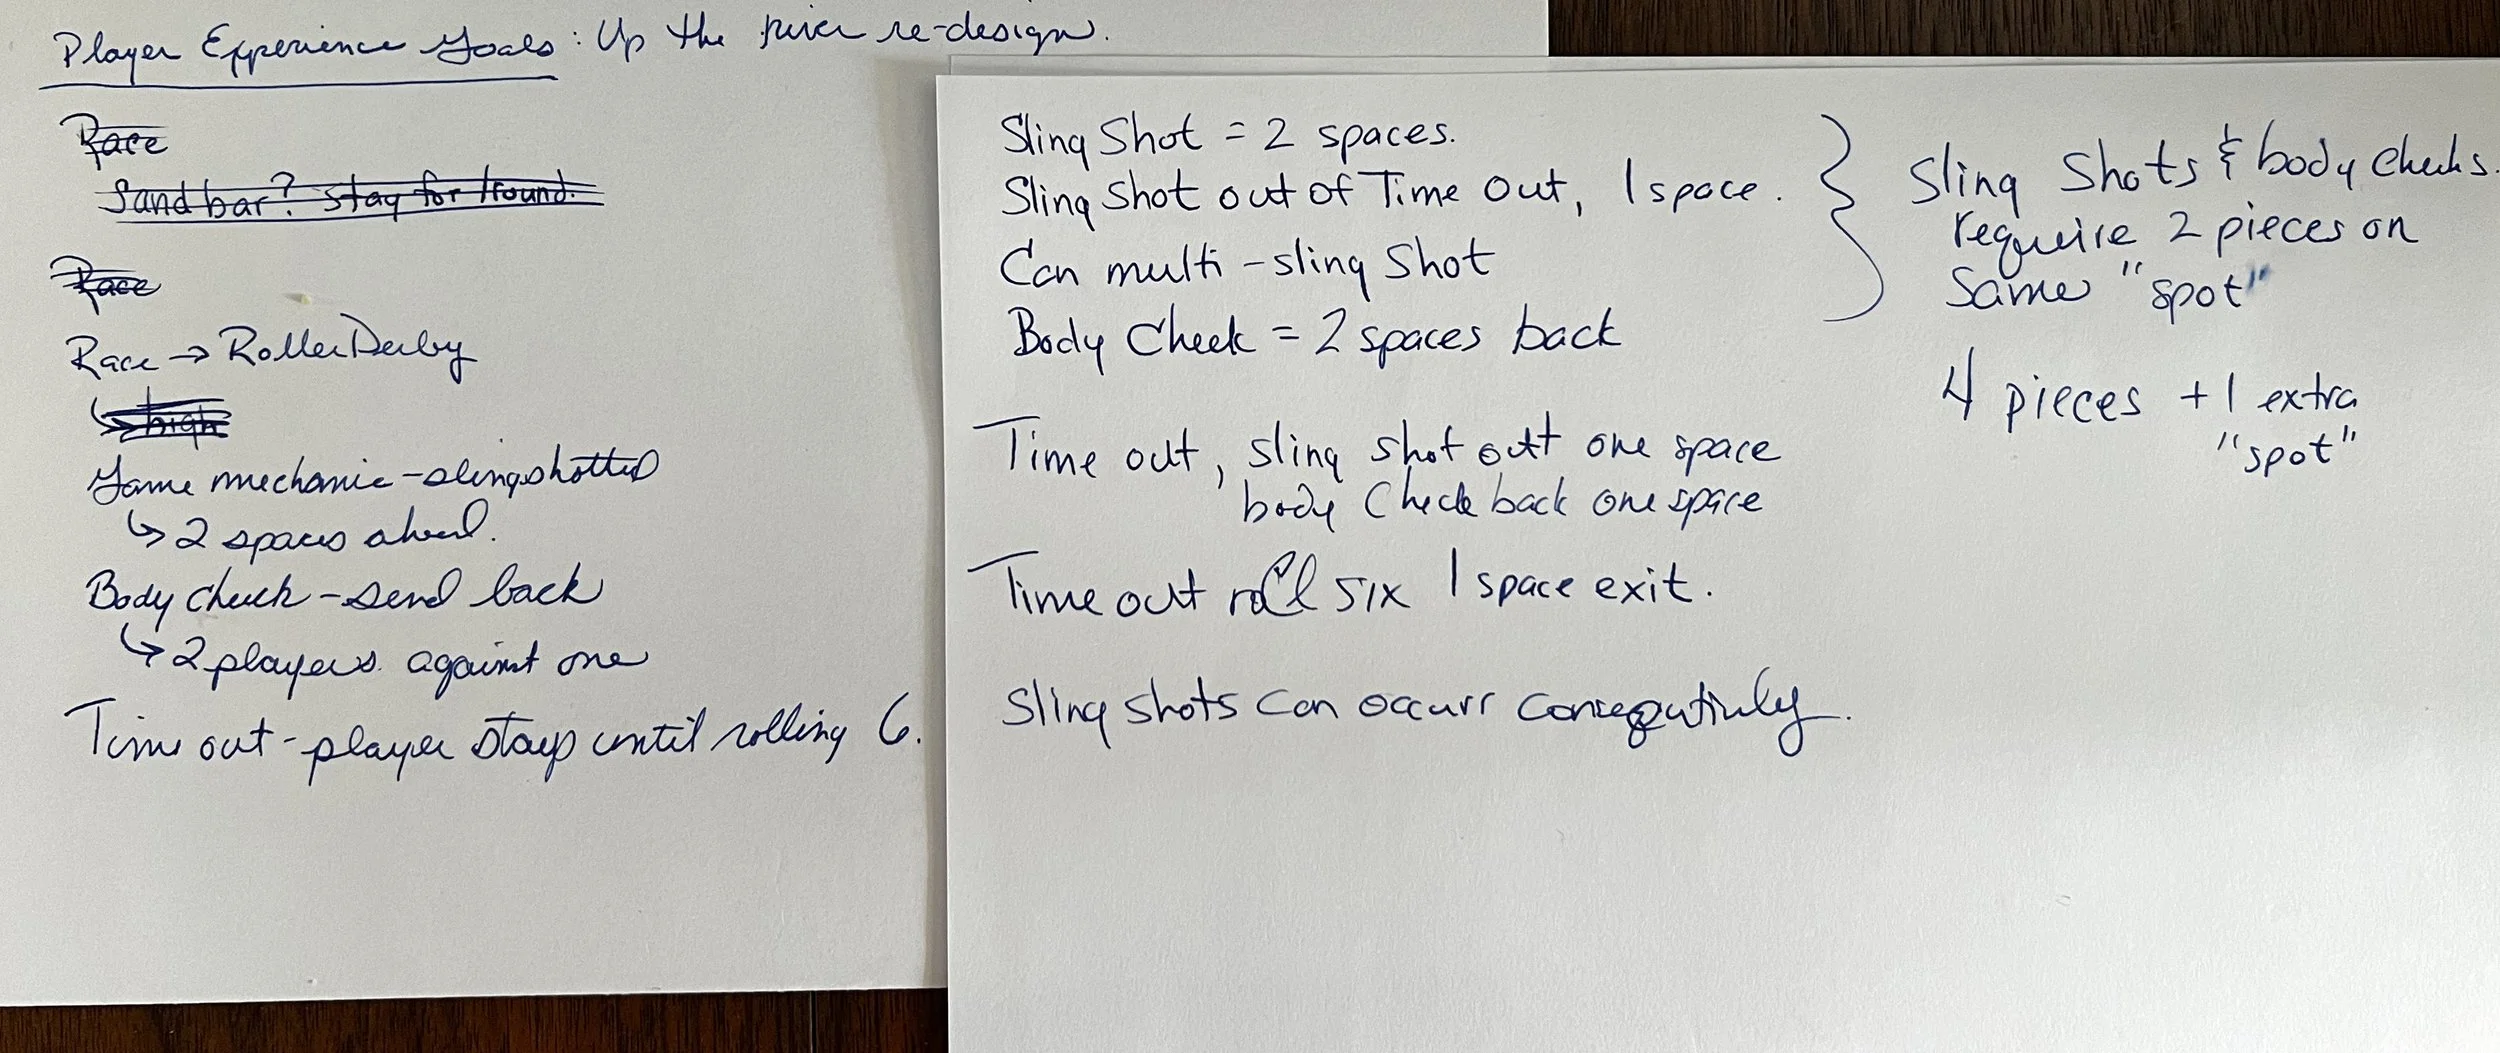 Player Experience Goals: Up the river re-design.
Race
Sand bar? Stay for 1round.
Race
Race → RollerDerby
↳ high
Game mechanic - slingshotted
↳ 2 spaces ahead.
Body check - send back
↳ 2 players against one
Time out - player stays until rolling 6.
Sling Shot = 2 spaces.
Sling Shot out of Time Out, 1 space.
Can multi-sling Shot
Body Check = 2 spaces back
Sling Shots & body checks.
require 2 pieces on
Same "spot"
4 pieces + 1 extra
"spot"
Time out, sling shot outt one space
body Check back one space
Time out roll six 1 space exit.
Sling shots can occurr consequtively.